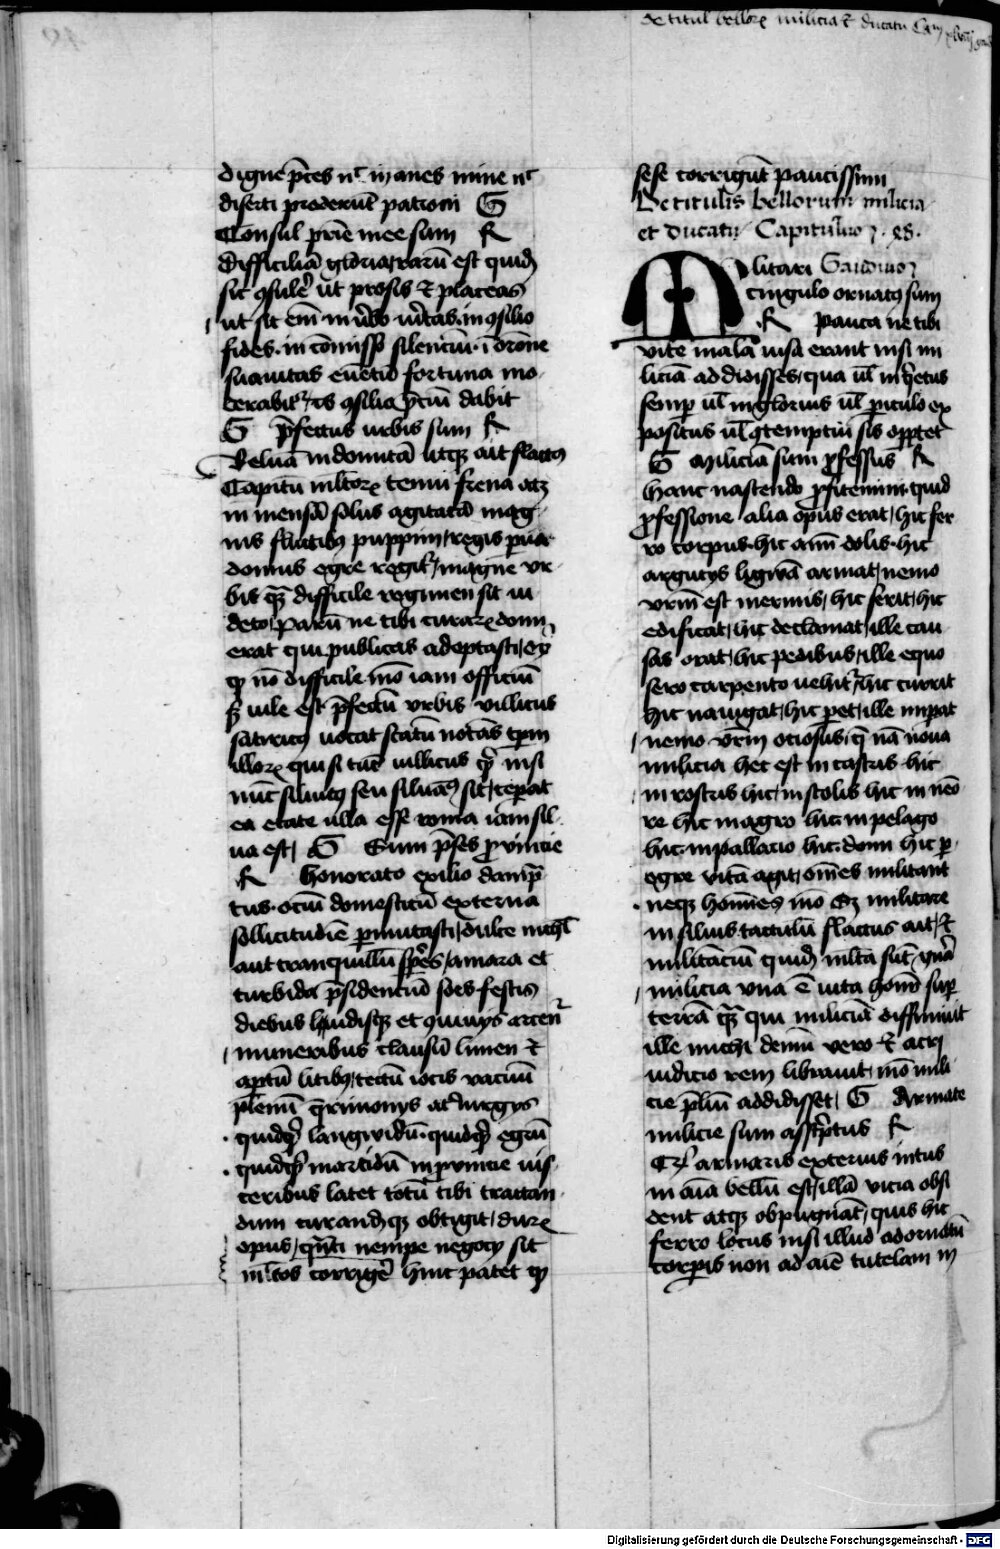 de titul bellorum milicia et ducatu
digne preces nec inanes mine nec
diserti proderunt patroni G
Consul patrie mee sum R
difficiliam gloria rarum est quidem
sic consulere ut prosis et placeas
ut sit enim in verbo veritas in consilio
fides in commisso silencium in oratione
suauitas euentum fortuna mo
derabitur tuis consilia precium dabit
G prefectus urbis sum R
Beluam indomitam utque ait flaccus
Capitum multorum tenui frena atque
in mensa solus agitatam mag
nis fluctibus puppim regis parua
domus egre regitur magne ur
bis quam difficile regimen sit ui
deto parum ne tibi curarum domi
erat qui publicas adeptasti
quod non difficile modo iam officium
sed uile est prefectum urbis villicus
satiricus uocat scatum notans tempori
illorum qui si tunc uillicus quere nisi
nunc siluicus seu siluanus sit ceperat
ea etate uilla esse roma iam sil
ua est G Sum preses prouincie
R honorato exilio dampna
tus ocium domesticum externa
sollicitudine permutasti dulce nichil
aut tranquillum speres amara et
turbida presidencium sors festis
diebus ludisque et conuiuiis arcentur
muneribus clausum limen et
apertum litibus tectum iocis vacuum
plenum querimoniis atque iurgiis
quidquid languidum quidquid egrum
quidquid marcidum in prouincie uis
ceribus latet totum tibi tractan
dum curandumque obtigit durum
opus quanti nempe negocii sit
multos corrigere hinc patet quod
sese corrigunt paucissimi
De titulis bellorum milicia
et ducatu Capitulum 48
Militari Gaudium
cingulo ornatus sum
R pauca ne tibi
vite mala uisa erant nisi mi
liciam addidisses qua uel inquietus
semper uel inglorius uel periculo ex
positus uel contemptui sis oportet
G Miliciam sum professus R
hanc nascendo profitemini quid
professione alia opus erat hic fer
ro corpus hic animum dolis hic
arguciis liguam armat nemo
vestrum est inermis hic ferit hic
edificat hic declamat ille cau
sas orat hic pedibus ille equo
sero carpento uehitur hic currit
hic nauigat hic paret ille imperat
nemo vestrum ociosus que nam noua
milicia hec est in castris hic
in rostris hic in scolis hic in nemo
re hic in agro hic in pelago
hic in pallacio hic domi hic per
egre vitam agit omnes militant
neque homines modo militare
in siluis tactulum flaccus ait et
militancium quidem multa sunt genera
milicia una est uita hominis super
terram quam qui miliciam diffiniuit
ille michi demum vero et acri
iudicio rem librauit modo mili
cie prelium addidisset G Armate
milicie sum asscriptus R
Cur armaris exterius intus
in anima bellum est illam vicia obsi
dent atque obpugnant quis hic
ferro locus nisi illud ad ornatum
corporis non ad anime tutelam in
Digitalisierung gefördert durch die Deutsche Forschungsgemeinschaft - DFG